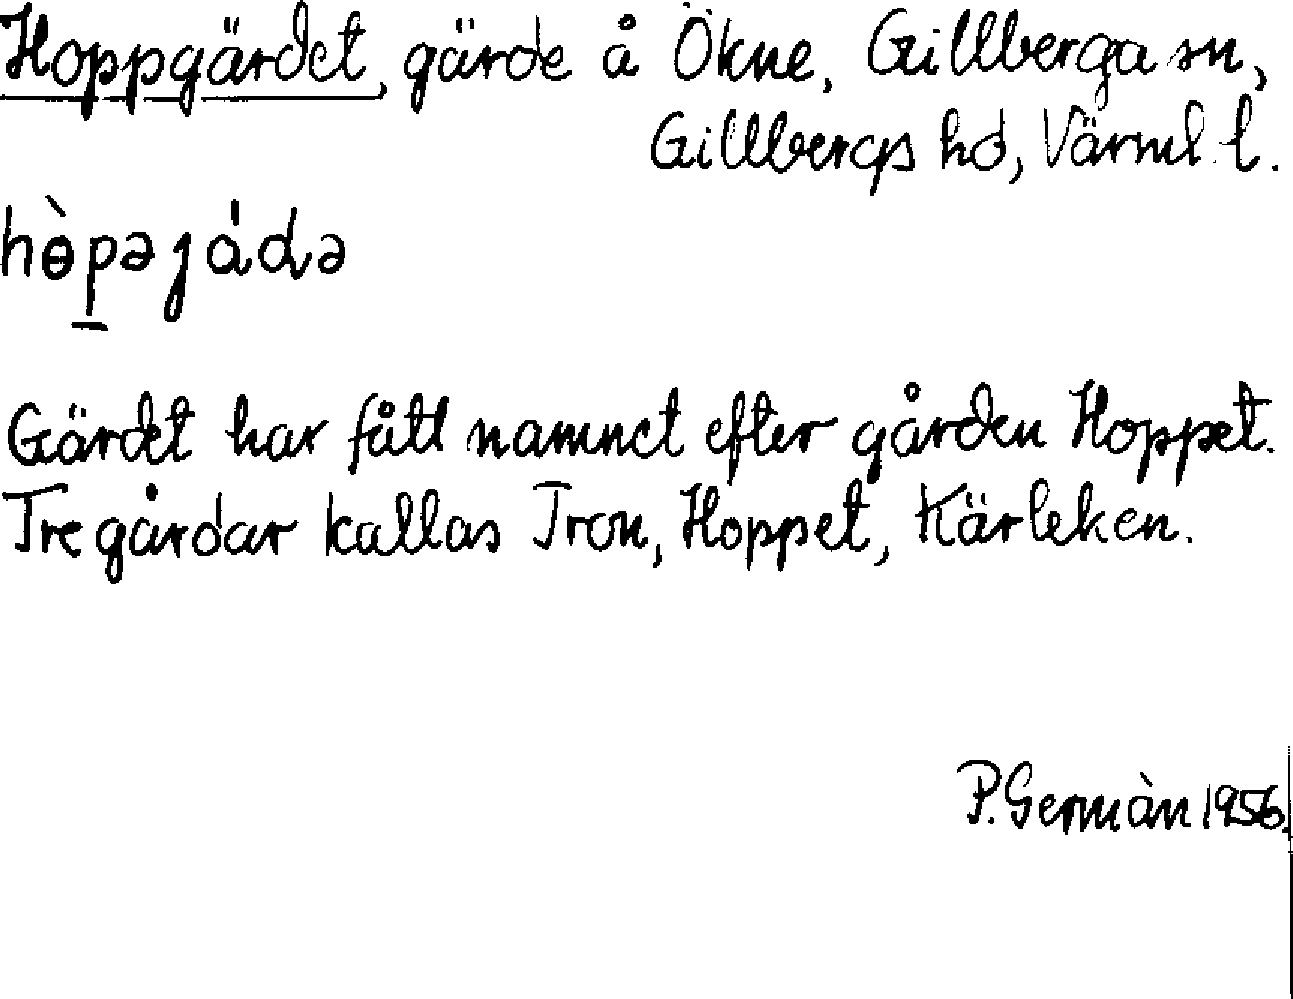 Hoppgärdet, gärde å Ökne, Gillberga sn,
Gillbergs hd, Värml. l.
hɵ̀pəȷådə
Gärdet har fått namnet efter gården Hoppet.
Tre gårdar kallas Tron, Hoppet, Kärleken.
P. Germàn 1956.